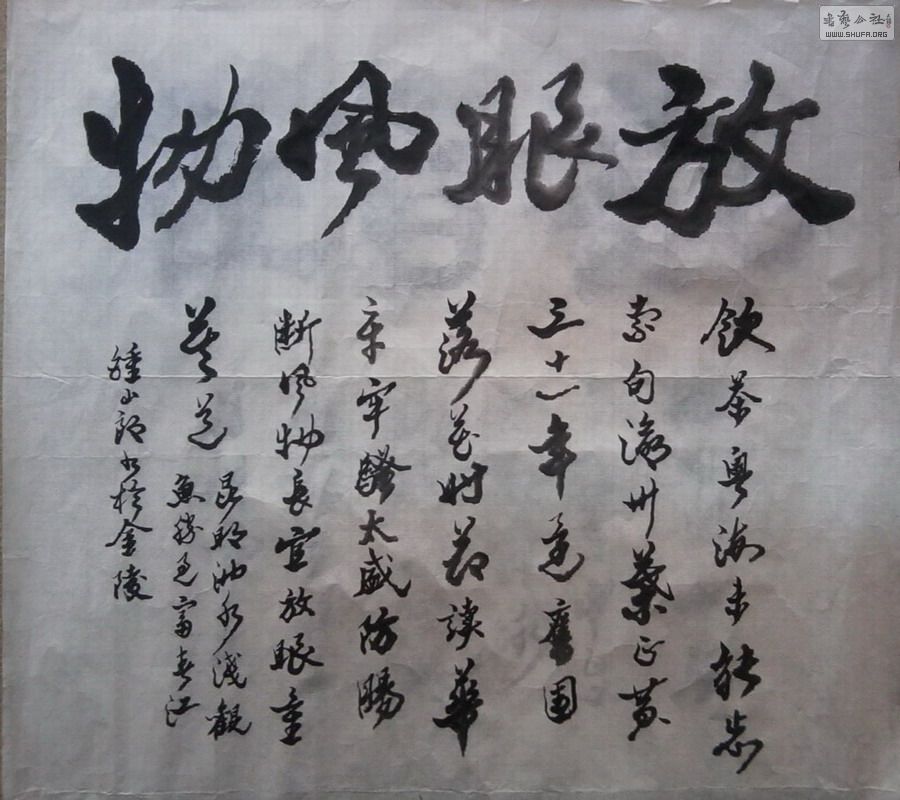 放眼風物
飲茶粵海未能忘
索句渝州葉正黄
三十一年還舊國
落花时節讀華
章牢騷太盛防腸
断風物長宜放眼量
莫道昆明池水淺觀
魚勝過富春江
鍾山水於金陵
書藝公社
WWW.SHUFA.ORG